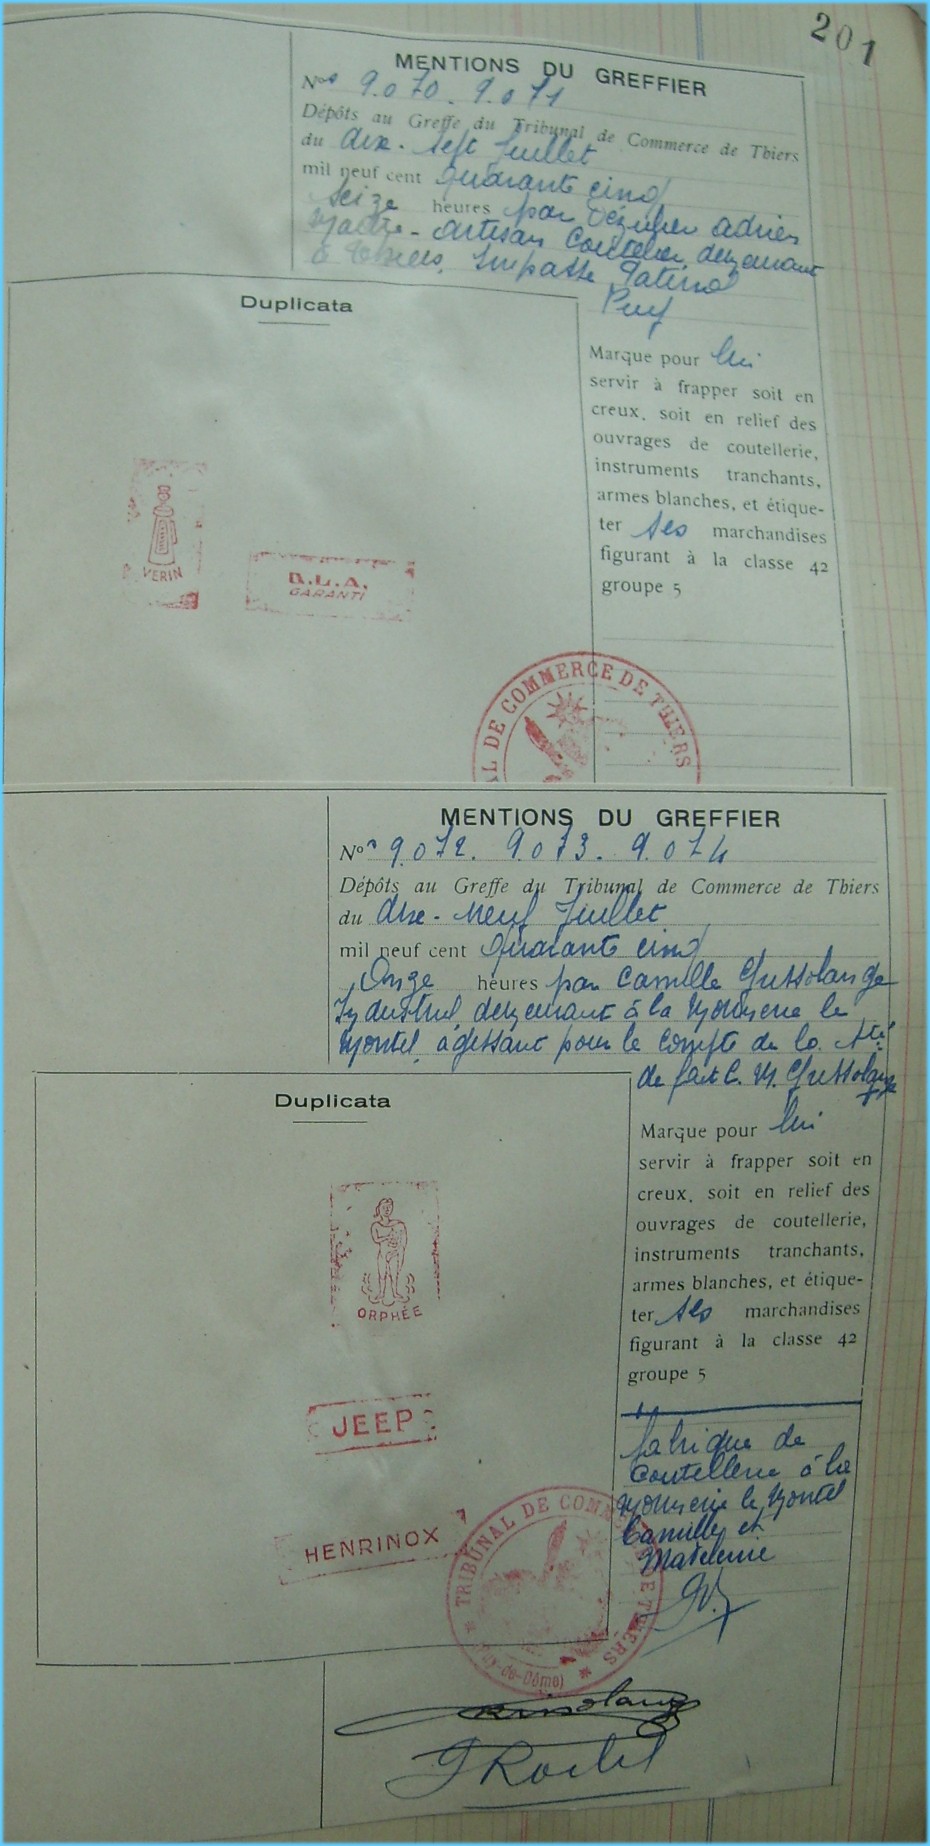 201
MENTIONS DU GREFFIER
Nos 9.070. 9.071
Dépôts au Greffe du Tribunal de Commerce de Thiers
du dix-sept Juillet
mil neuf cent quarante cinq
Seize heures par adrien
Maître-artisan Coutelier demeurant
à Thiers, Impasse
Duplicata
Marque pour lui
servir à frapper soit en
creux, soit en relief des
ouvrages de coutellerie,
instruments tranchants,
armes blanches, et étique-
ter ses marchandises
figurant à la classe 42
groupe 5
VERIN
GARANTI
DE COMMERCE DE THIERS
MENTIONS DU GREFFIER
Nos 9.072. 9.073. 9.074
Dépôts au Greffe du Tribunal de Commerce de Thiers
du dix-neuf Juillet
mil neuf cent quarante cinq
Onze heures par Camille Grissolange
Industriel demeurant à la Monnerie le
Montel, agissant pour le compte de la Sté
de fait C. M. Grissolange
Duplicata
Marque pour lui
servir à frapper soit en
creux, soit en relief des
ouvrages de coutellerie,
instruments tranchants,
armes blanches, et étique-
ter ses marchandises
figurant à la classe 42
groupe 5
ORPHÉE
JEEP
HENRINOX
fabrique de
Coutellerie à la
Monnerie le Montel
Camille et
TRIBUNAL DE COMMERCE DE THIERS
(Puy-de-Dôme)